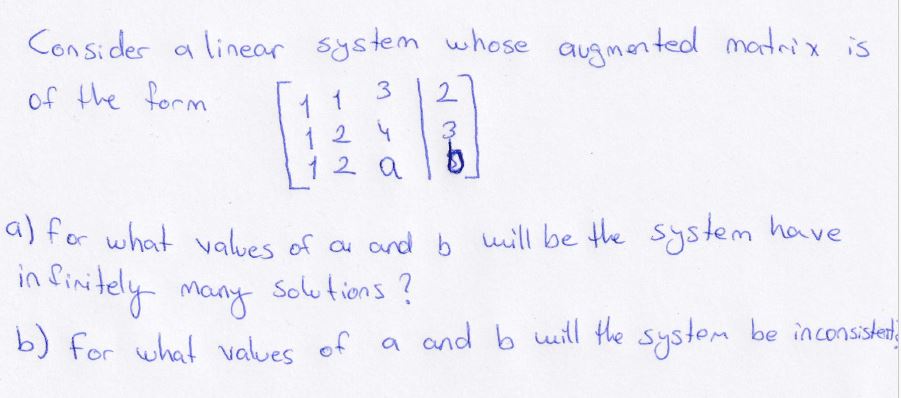 Consider a linear system whose augmented matrix is
of the form
1 1 3 | 2
1 2 4 | 3
1 2 a | b
a) for what values of a and b will be the system have
infinitely many solutions ?
b) For what values of a and b will the system be inconsistent?